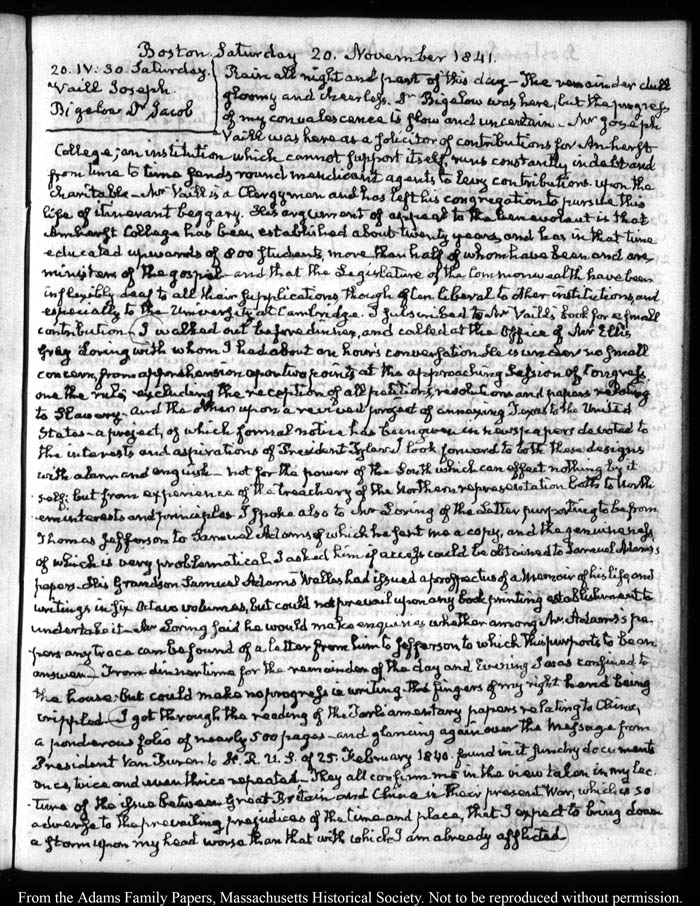 Boston Saturday 20. November 1841.
20. IV:30. Saturday.
Vaill Joseph
Bigelow Dr Jacob
Rain all night and part of this day— The remainder dull
gloomy and cheerless. Dr Bigelow was here, but the progress
of my convalescence is slow and uncertain— Mr Joseph
Vaill was here as a solicitor of contributions for Amherst
College; an institution which cannot support itself, runs constantly in debt and
from time to time sends round mendicant agents, to levy contributions upon the
charitable— Mr Vaill is a Clergyman and has left his congregation to pursue this
life of itinerant beggary. His argument of appeal to the benevolent is that
Amherst College has been established about twenty years, and has in that time
educated upwards of 800 students, more than half of whom have been and are
ministers of the gospel— and that the Legislature of the Commonwealth have been
inflexibly deaf to all their supplications, though often liberal to other institutions and
especially to the University at Cambridge. I subscribed to Mr Vaill's book for a small
contribution— I walked out before dinner, and called at the Office of Mr Ellis
Gray Loring with whom I had about an hour's conversation. He is under no small
concern, from apprehension upon two points at the approaching Session of Congress.
one the rule, excluding the reception of all petitions, resolutions and papers relating
to Slavery— and the other upon a revived project of annexing Texas to the United
States— a project, of which formal notice has been given in newspapers devoted to
the interests and aspirations of President Tyler. I look forward to both these designs
with alarm and anguish— not for the power of the South which can effect nothing by it
self; but from experience of the treachery of the Northern representation both to North
ern interests and principles. I spoke also to Mr Loring of the Letter purporting to be from
Thomas Jefferson to Samuel Adams of which he sent me a copy, and the genuineness
of which is very problematical. I asked him if access could be obtained to Samuel Adams's
papers. His Grandson Samuel Adams Welles had issued a prospectus of a Memoir of his life and
writings in six Octavo volumes, but could not prevail upon any book printing establishment to
undertake it— Mr Loring said he would make enquiries whether among Mr Adams's pa-
pers any trace can be found of a letter from him to Jefferson to which this purports to be an
answer— From dinner time for the remainder of the day and Evening I was confined to
the house; but could make no progress in writing— the fingers of my right hand being
crippled— I got through the reading of the Parliamentary papers relating to China,
a ponderous folio of nearly 500 pages— and glancing again over the Message from
President Van Buren to H. R. U. S. of 25. February 1840. found in it sundry documents
once, twice and even thrice repeated— They all confirm me in the view taken in my lec-
ture of the issue between Great Britain and China in their present War, which is so
adverse to the prevailing prejudices of the time and place, that I expect to bring down
a storm upon my head worse than that with which I am already afflicted—
From the Adams Family Papers, Massachusetts Historical Society. Not to be reproduced without permission.